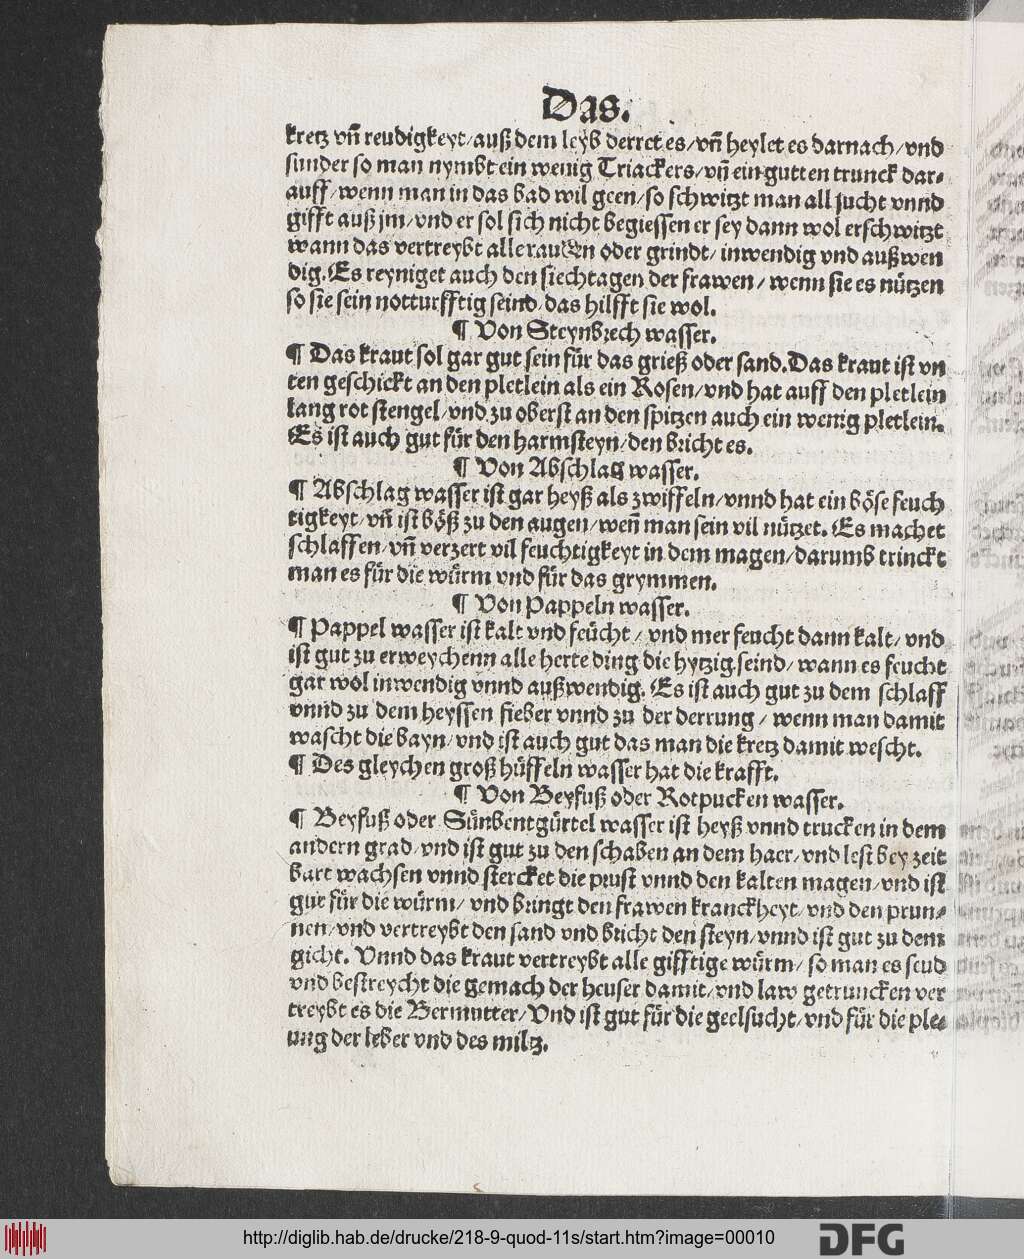 Das.
kretz vñ reudigkeyt/auß dem leyb derret es/vñ heylet es darnach/vnd
sunder so man nymbt ein wenig Triackers/vñ ein gutten trunck dar⸗
auff/wenn man in das bad wil geen/so schwitzt man all sucht vnnd
gifft auß jm/vnd er sol sich nicht begiessen er sey dann wol erschwitzt
wann das vertreybt alle rauden oder grindt/inwendig vnd außwen
dig. Es reyniget auch den siechtagen der frawen/wenn sie es nützen
so sie sein notturfftig seind/das hilfft sie wol.
¶ Von Steynbrech wasser.
¶ Das kraut sol gar gut sein für das grieß oder sand. Das kraut ist vn
ten geschickt an den pletlein als ein Rosen/vnd hat auff den pletlein
lang rot stengel/vnd zu oberst an den spitzen auch ein wenig pletlein.
Es ist auch gut für den harmsteyn/den bricht es.
¶ Von Abschlag wasser.
¶ Abschlag wasser ist gar heyß als zwiffeln/vnnd hat ein böse feuch
tigkeyt/vñ ist böß zu den augen/weñ man sein vil nützet. Es machet
schlaffen/vñ verzert vil feuchtigkeyt in dem magen/darumb trinckt
man es für die würm vnd für das grymmen.
¶ Von Pappeln wasser.
¶ Pappel wasser ist kalt vnd feücht/vnd mer feucht dann kalt/vnd
ist gut zu erweychenn alle herte ding die hytzig seind/wann es feucht
gar wol inwendig vnnd außwendig. Es ist auch gut zu dem schlaff
vnnd zu dem heyssen fieber vnnd zu der derrung/wenn man damit
wascht die bayn/vnd ist auch gut das man die kretz damit wescht.
¶ Des gleychen groß hüffeln wasser hat die krafft.
¶ Von Beyfuß oder Rotpucken wasser.
¶ Beyfuß oder Sünbentgürtel wasser ist heyß vnnd trucken in dem
andern grad/vnd ist gut zu den schaben an dem haer/vnd lest bey zeit
bart wachsen vnnd stercket die prust vnnd den kalten magen/vnd ist
gut für die würm/vnd bringt den frawen kranckheyt/vnd den prun⸗
nen/vnd vertreybt den sand vnd bricht den steyn/vnnd ist gut zu dem
gicht. Vnnd das kraut vertreybt alle gifftige würm/so man es seud
vnd bestreycht die gemach der heuser damit/vnd law getruncken ver
treybt es die Bermutter/Vnd ist gut für die geelsucht/vnd für die ple⸗
ung der leber vnd des miltz.
http://diglib.hab.de/drucke/218-9-quod-11s/start.htm?image=00010
DFG